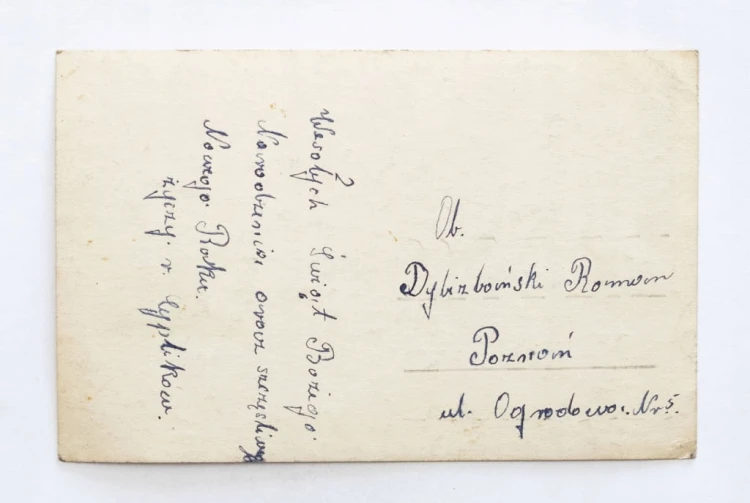 Wesołych Świąt Bożego
Narodzenia oraz szczęśliwego
Nowego Roku.
życzy r. Cyplików.
Ob.
Dybizbański Roman
Poznań
ul. Ogrodowa. Nr 5.